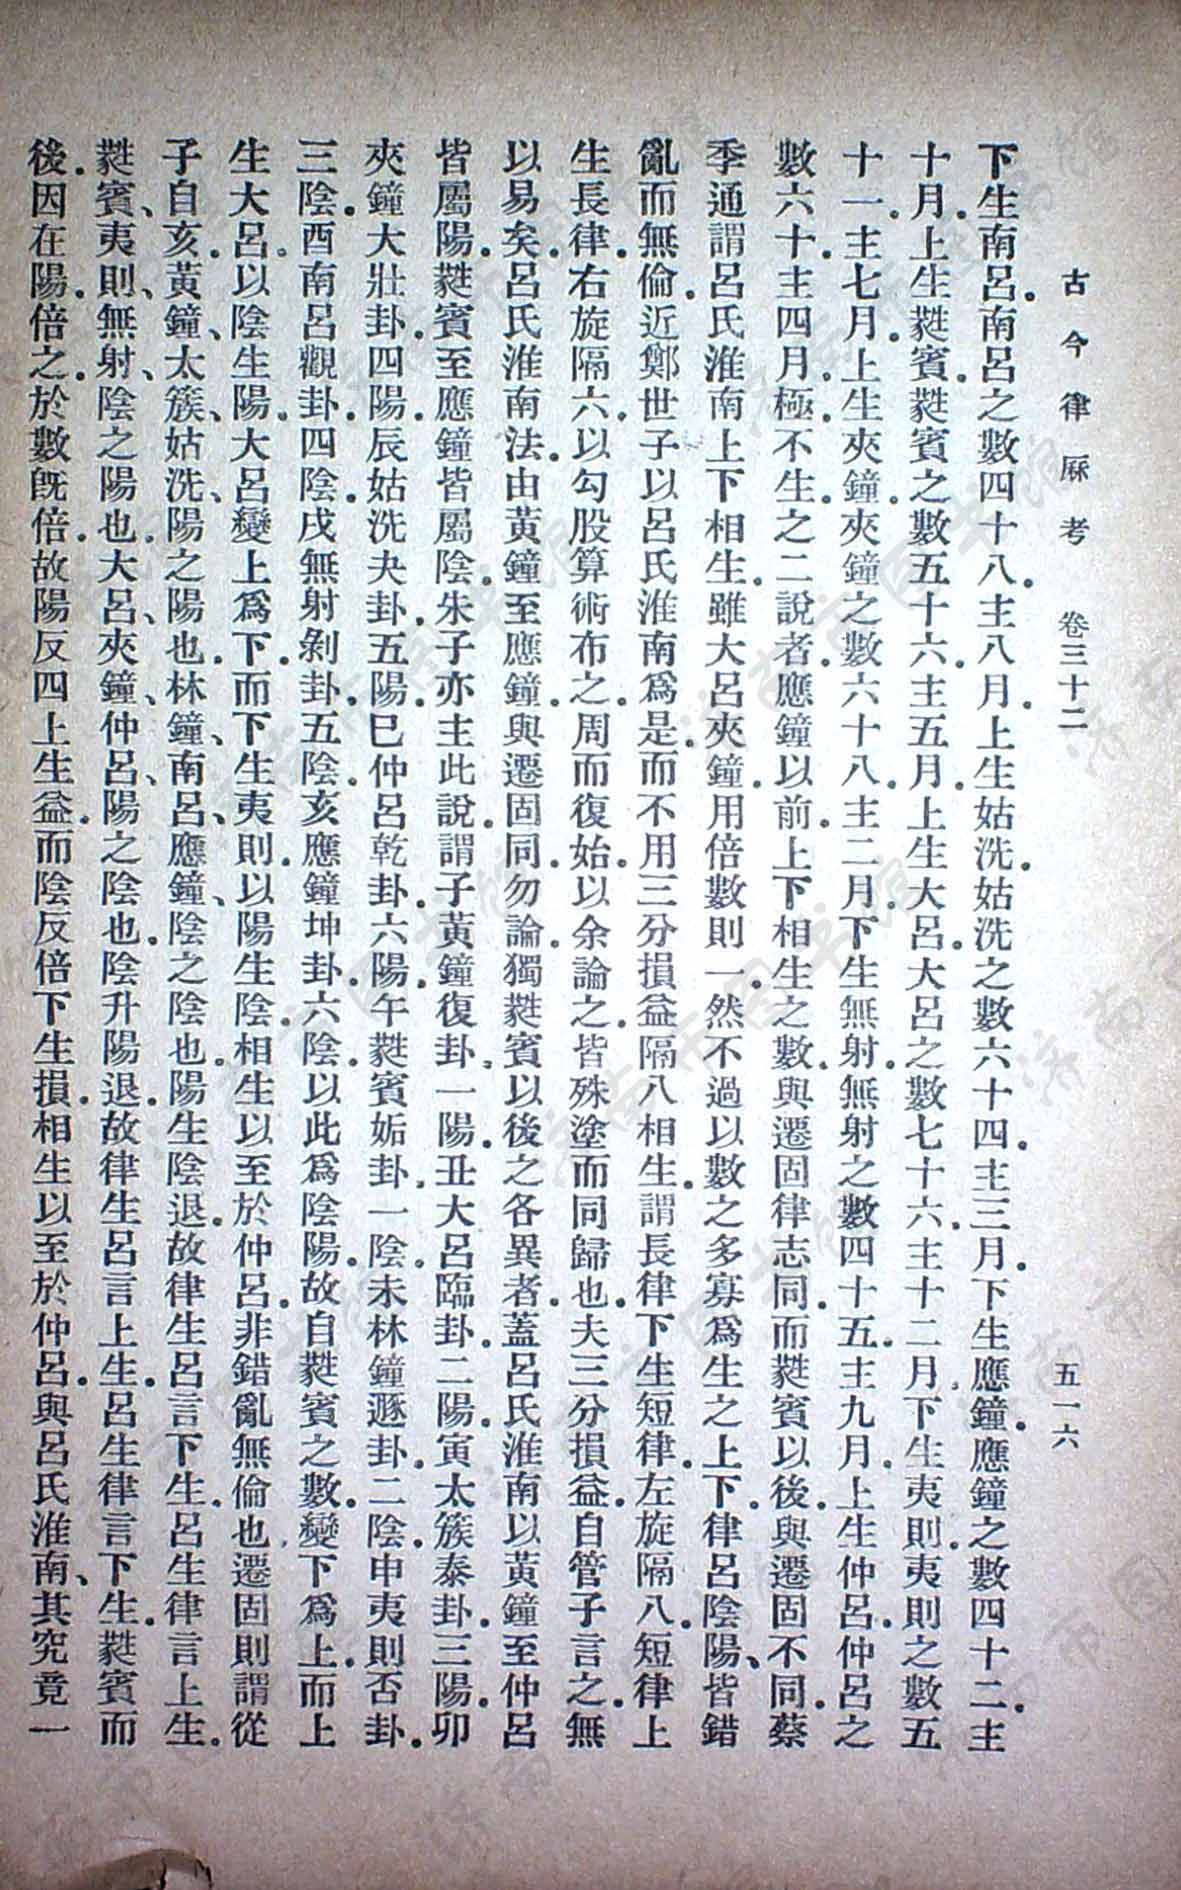 古今律厤考　卷三十二　五一六
下生南呂。南呂之數四十八。主八月。上生姑洗。姑洗之數六十四。主三月。下生應鐘。應鐘之數四十二。主
十月。上生蕤賓。蕤賓之數五十六。主五月。上生大呂。大呂之數七十六。主十二月。下生夷則。夷則之數五
十一。主七月。上生夾鐘。夾鐘之數六十八。主二月。下生無射。無射之數四十五。主九月。上生仲呂。仲呂之
數六十。主四月。極不生。之二說者。應鐘以前。上下相生之數。與遷固律志同。而蕤賓以後。與遷固不同。蔡
季通謂呂氏淮南上下相生。雖大呂夾鐘。用倍數則一。然不過以數之多寡爲生之上下。律呂陰陽、皆錯
亂而無倫。近鄭世子以呂氏淮南爲是。而不用三分損益隔八相生。謂長律下生短律。左旋隔八。短律上
生長律。右旋隔六。以勾股算術布之。周而復始。以余論之。皆殊塗而同歸也。夫三分損益。自管子言之。無
以易矣。呂氏淮南法。由黃鐘至應鐘。與遷固同。勿論。獨蕤賓以後之各異者。蓋呂氏淮南以黃鐘至仲呂
皆屬陽。蕤賓至應鐘皆屬陰。朱子亦主此說。謂子黃鐘復卦一陽。丑大呂臨卦二陽。寅太簇泰卦三陽。卯
夾鐘大壯卦四陽。辰姑洗夬卦五陽。巳仲呂乾卦六陽。午蕤賓姤卦一陰。未林鐘遯卦二陰。申夷則否卦
三陰。酉南呂觀卦四陰。戌無射剝卦五陰。亥應鐘坤卦六陰。以此爲陰陽。故自蕤賓之數。變下爲上。而上
生大呂。以陰生陽。大呂變上爲下。而下生夷則。以陽生陰。相生以至於仲呂。非錯亂無倫也。遷固則謂從
子自亥。黃鐘、太簇、姑洗、陽之陽也。林鐘、南呂、應鐘、陰之陰也。陽生陰退。故律生呂言下生。呂生律言上生。
蕤賓、夷則、無射、陰之陽也。大呂、夾鐘、仲呂、陽之陰也。陰升陽退。故律生呂言上生。呂生律言下生。蕤賓而
後。因在陽倍之。於數旣倍。故陽反四上生益。而陰反倍下生損。相生以至於仲呂。與呂氏淮南、其究竟一